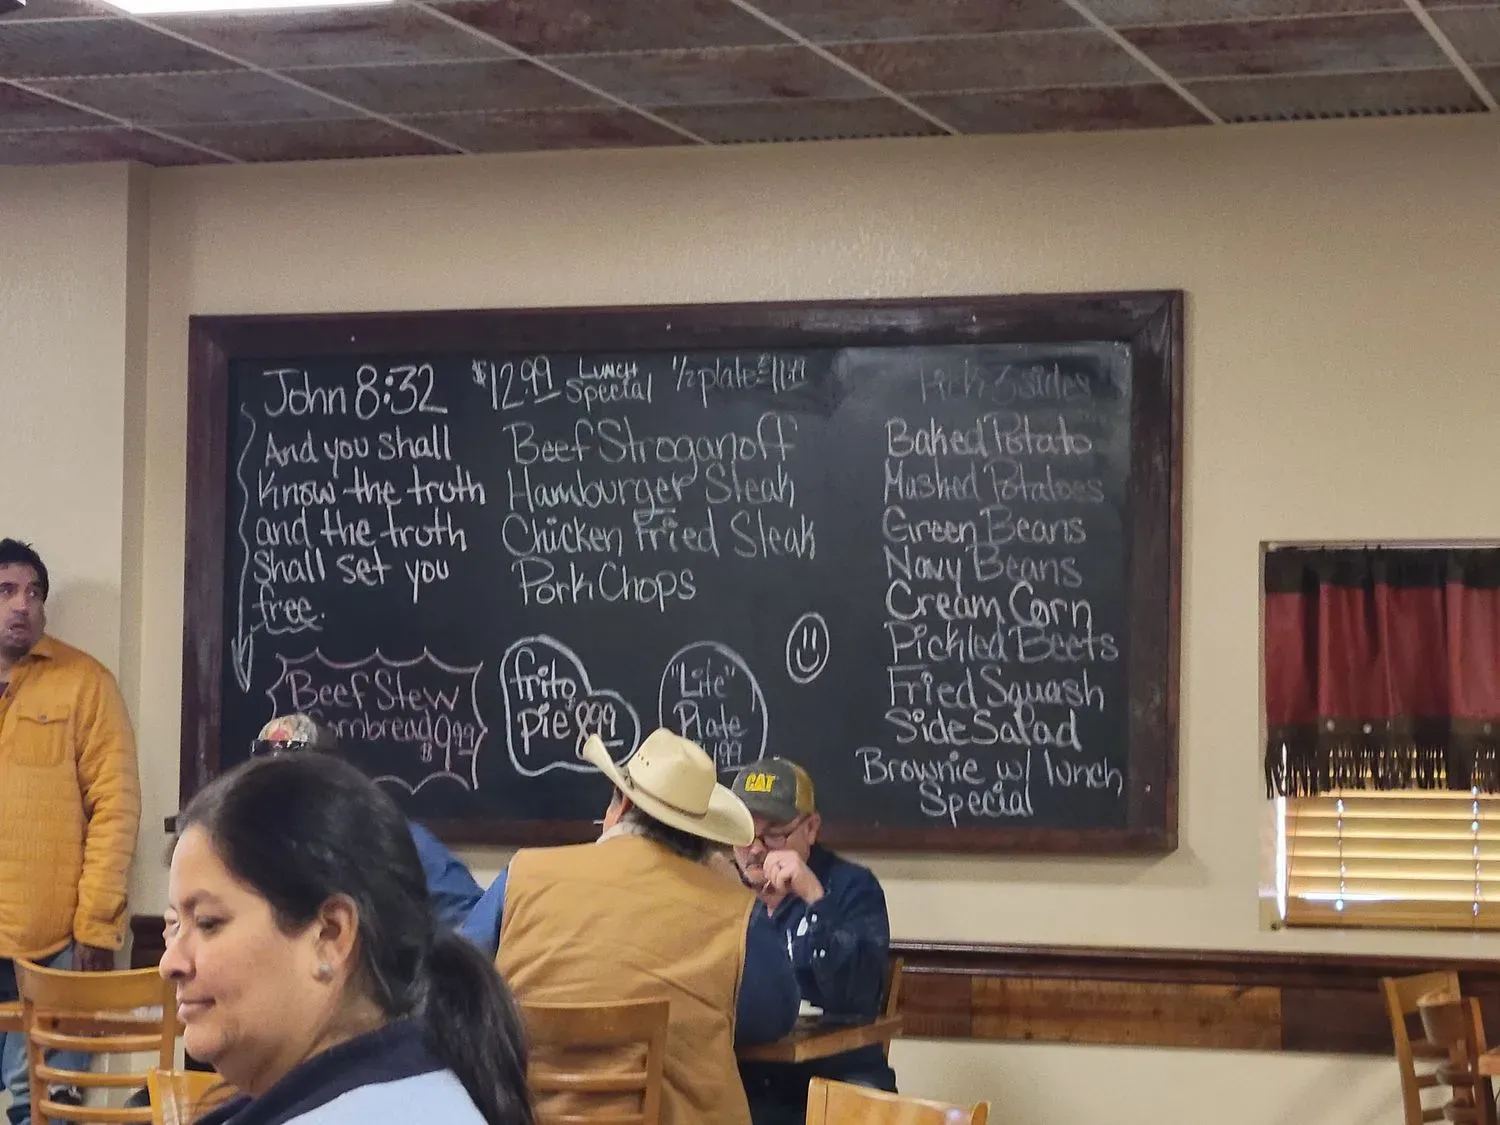 John 8:32
And you shall
know the truth
and the truth
shall set you
free.
$12.99 Lunch Special 1/2 plate $11.99
Beef Stroganoff
Hamburger Steak
Chicken Fried Steak
Pork Chops
Pick 3 sides
Baked Potato
Mashed Potatoes
Green Beans
Navy Beans
Cream Corn
Pickled Beets
Fried Squash
Side Salad
Brownie w/ lunch
Special
Beef Stew
$9.99
frito
pie 8.99
"Lite"
Plate
CAT